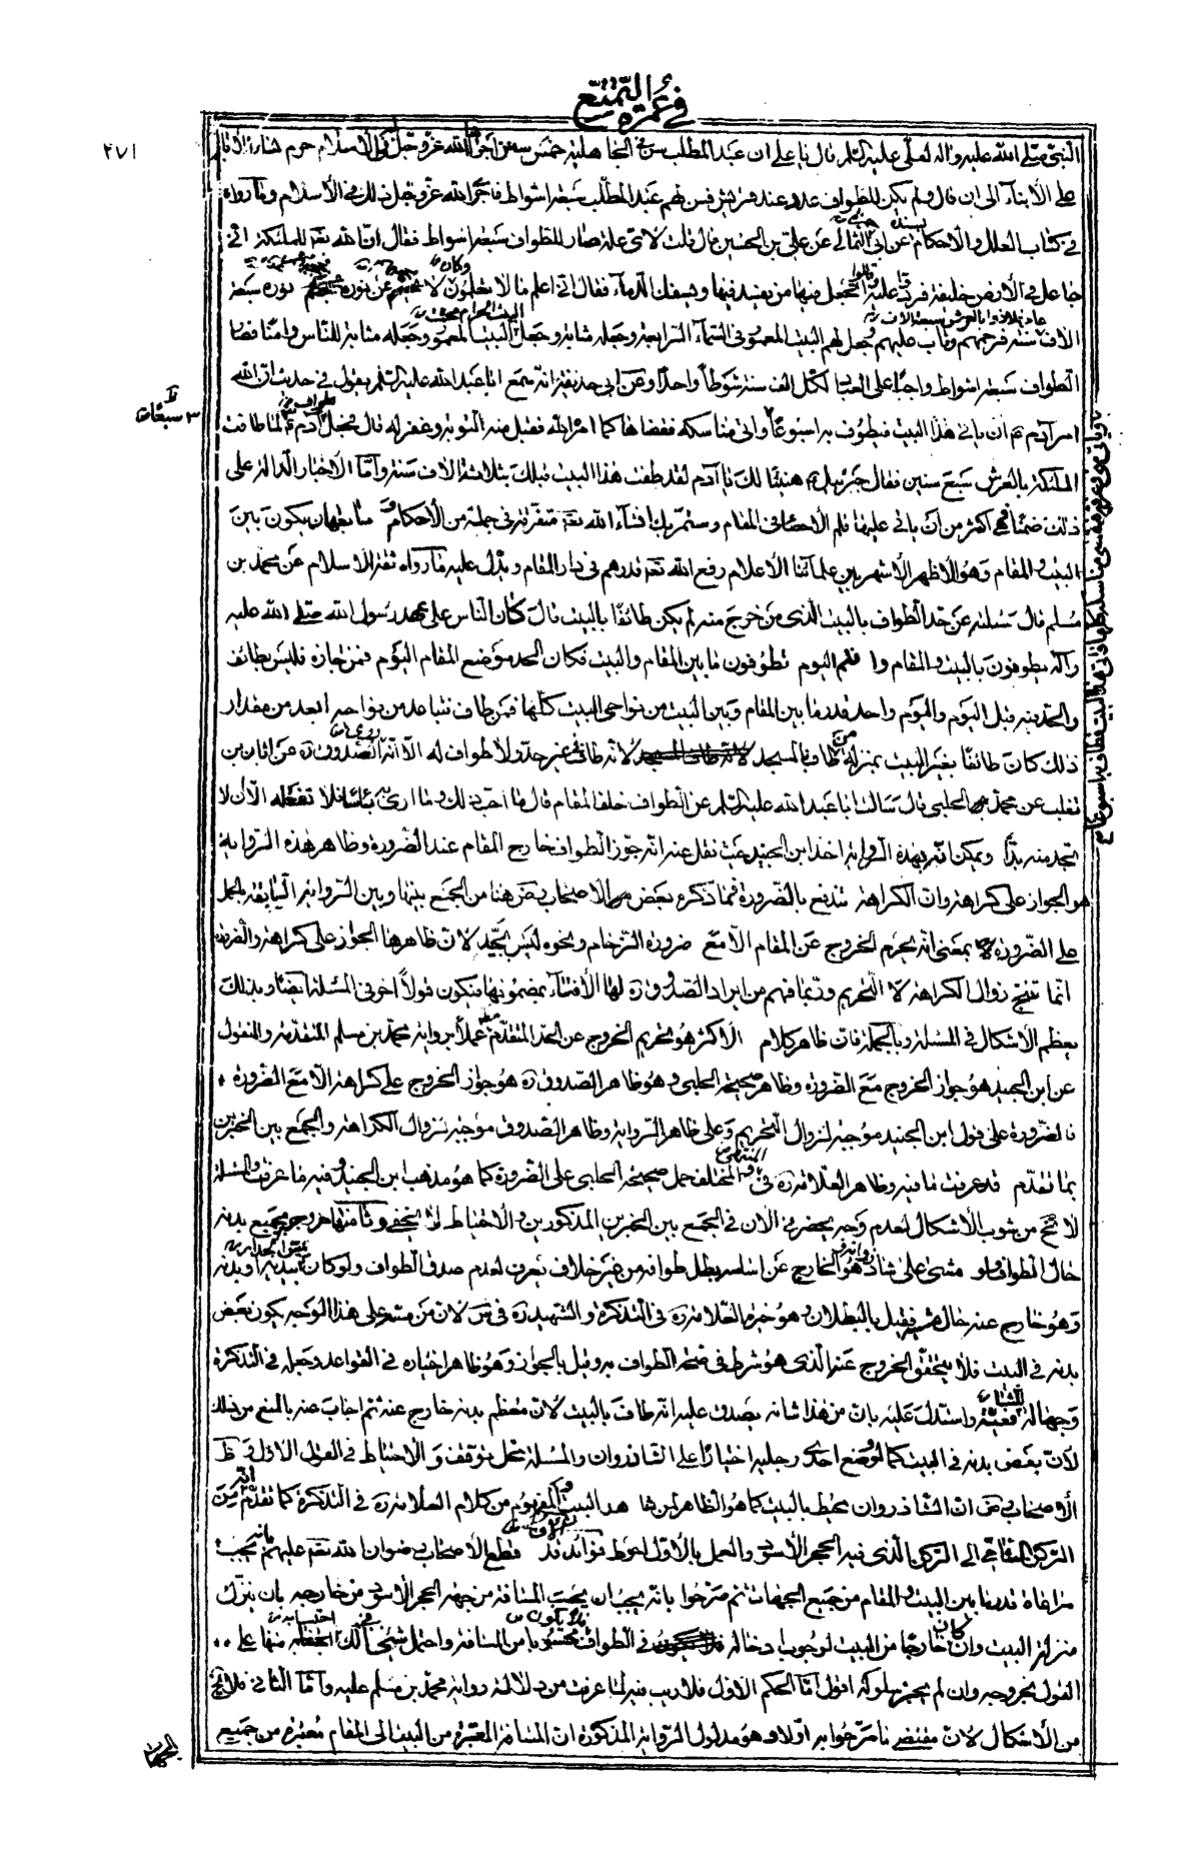 في عمرة التمتع
٢٧١
النبي صلى الله عليه واله لعلي عليه السلم قال يا علي ان عبد المطلب سن في الجاهلية خمس سنن اجراها الله عز وجل في الاسلام حرم نساء الاباء
على الأبناء الى ان قال ولم يكن للطواف عدد عند قريش فسن لهم عبد المطلب سبعة اشواط فاجرى الله عز وجل ذلك في الاسلام وما رواه
في كتاب العلل والاحكام بسنده عن ابي الثمالي عن علي بن الحسين قال قلت لاي علة صار للطواف سبعة اشواط فقال ان الله تعم للملئكة اني
جاعل في الأرض خليفة فردوا عليه وقالوا اتجعل فيها من يفسد فيها ويسفك الدماء فقال اني اعلم ما لا تعلمون وكان لا عن نوره نوره سبعة
الاف سنة فرحمهم وتاب عليهم وجعل لهم البيت المعمور في السماء الرابعة وجعله مثابة وجعل البيت الحرام تحت البيت المعمور وجعله مثابة للناس وامنا فصار
الطواف سبعة اشواط واجبا على العباد لكل الف سنة شوطا واحدا وعن ابي خديجة انه سمع ابا عبد الله عليه السلم يقول في حديث ان الله
امر آدم ع ان ياتي هذا البيت فيطوف به اسبوعا واتى مناسكه فقضاها كما امر الله فقبل منه التوبة وغفر له قال فجعل آدم ع لما طافت
الملئكة بالعرش سبع سنين فقال جبرئيل ع هنيئا لك يا آدم لقد طفت هذا البيت قبلك بثلاثة الاف سنة واما الأخبار الدالة على
ذلك ضمنا فهي اكثر من ان ياتي عليها قلم الاحصاء في المقام وستمر بك انشاء الله تعم متفرقة في جملة من الأحكام ان يكون بين
البيت والمقام وهو الاظهر الأشهر بين علمائنا الأعلام رفع الله تعم قدرهم في دار المقام ويدل عليه ما رواه ثقة الاسلام عن محمد بن
مسلم قال سئلته عن حد الطواف بالبيت الذي من خرج منه لم يكن طائفا بالبيت قال كان الناس على عهد رسول الله صلى الله عليه
وآله يطوفون بالبيت والمقام وانتم اليوم تطوفون ما بين المقام والبيت فكان الحد موضع المقام اليوم فمن جازه فليس بطائف
والحد فيه قبل اليوم واليوم واحد قدر ما بين المقام وبين البيت من نواحي البيت كلها فمن طاف فتباعد من نواحيه ابعد من مقدار
ذلك كان طائفا بغير البيت بمنزلة من طاف بالمسجد لانه طاف في غير حد ولا طواف له الا انه روى الصدوق ره عن ابان بن
تغلب عن محمد الحلبي قال سالت ابا عبد الله عليه السلم عن الطواف خلف المقام قال ما احب ذلك وما ارى به باسا فلا تفعله الا ان لا
تجد منه بدا ويمكن انه بهذه الرواية اخذ ابن الجنيد حيث نقل عنه انه جوز الطواف خارج المقام عند الضرورة وظاهر هذه الرواية
هو الجواز على كراهة وان الكراهة تندفع بالضرورة فما ذكره بعض الاصحاب رض هنا من الجمع بينها وبين الرواية السابقة بالحمل
على الضرورة بمعنى انه يحرم الخروج عن المقام الا مع ضرورة الزحام ونحوه ليس بجيد لان ظاهرها الجواز على كراهة والضرورة
انما تنتج زوال الكراهة لا التحريم وربما فهم من ايراد الصدوق ره لها الأفتاء بمضمونها فيكون قولا آخر في المسئلة ايضا وبذلك
يعظم الاشكال في المسئلة وبالجملة فان ظاهر كلام الأكثر هو تحريم الخروج عن الحد المتقدم عملا برواية محمد بن مسلم المتقدمة والمنقول
عن ابن الجنيد هو جواز الخروج مع الضرورة وظاهر صحيحة الحلبي وهو ظاهر الصدوق ره هو جواز الخروج على كراهة الا مع الضرورة
فالضرورة على قول ابن الجنيد موجبة لزوال التحريم وعلى ظاهر الرواية وظاهر الصدوق موجبة لزوال الكراهة والجمع بين الخبرين
بما تقدم قد عرفت ما فيه وظاهر العلامة ره في المنتهى والمختلف حمل صحيحة الحلبي على الضرورة كما هو مذهب ابن الجنيد وفيه ما عرفت والمسئلة
لا تخ من شوب الأشكال لعدم وجه يحضرني الان في الجمع بين الخبرين المذكورين والاحتياط لا يخفى وثامنها خروجه بجميع بدنه
حال الطواف فلو مشى على شاذروانه وهو الخارج عن اساسه بطل طوافه من غير خلاف يعرف لعدم صدق الطواف ولو كان يمس الجدار بيديه او بدنه
وهو خارج عنه حال مشيه فقيل بالبطلان وهو خيرة العلامة ره في التذكرة والشهيد ره في س لان من مسه على هذا الوجه يكون بعض
بدنه في البيت فلا يتحقق الخروج عنه الذي هو شرط في صحة الطواف به وقيل بالجواز وهو ظاهر اختياره في القواعد وجعله في التذكرة
وجها للشافعية واستدل عليه بان من هذا شانه يصدق عليه انه طاف بالبيت لان معظم بدنه خارج عنه ثم اجاب عنه بالمنع من ذلك
لان بعض بدنه في البيت كما لو وضع احدى رجليه اختيارا على الشاذروان والمسئلة محل توقف والاحتياط في القول الاول
الاصحاب رض ان الشاذروان محيط بالبيت كما هو الظاهر هذا البيت والمفهوم من كلام العلامة ره في التذكرة كما تقدم انه بين
الركن الشامي الى الركن الذي فيه الحجر الأسود والعمل بالأول احوط فوائد قد قطع الأصحاب رضوان الله تعم عليهم بانه يجب
مراعاة قدر ما بين البيت والمقام من جميع الجهات ثم صرحوا بانه يجب ان يحتسب المسافة من جهة الحجر الاسود من خارجه بان ينزل
منزلة البيت وان كان خارجا من البيت لوجوب ادخاله في الطواف فلا يكون محسوبا من المسافة واحتمل شيخنا في لك احتسابه منها على
القول بخروجه وان لم يجز سلوكه اقول اما الحكم الاول فلا ريب فيه لما عرفت من دلالة رواية محمد بن مسلم عليه واما الثاني فلا يخ
من الأشكال لان مقتضى ما صرحوا به اولا وهو مدلول الرواية المذكورة ان المسافة المعتبرة من البيت الى المقام معتبرة من جميع
الجهات